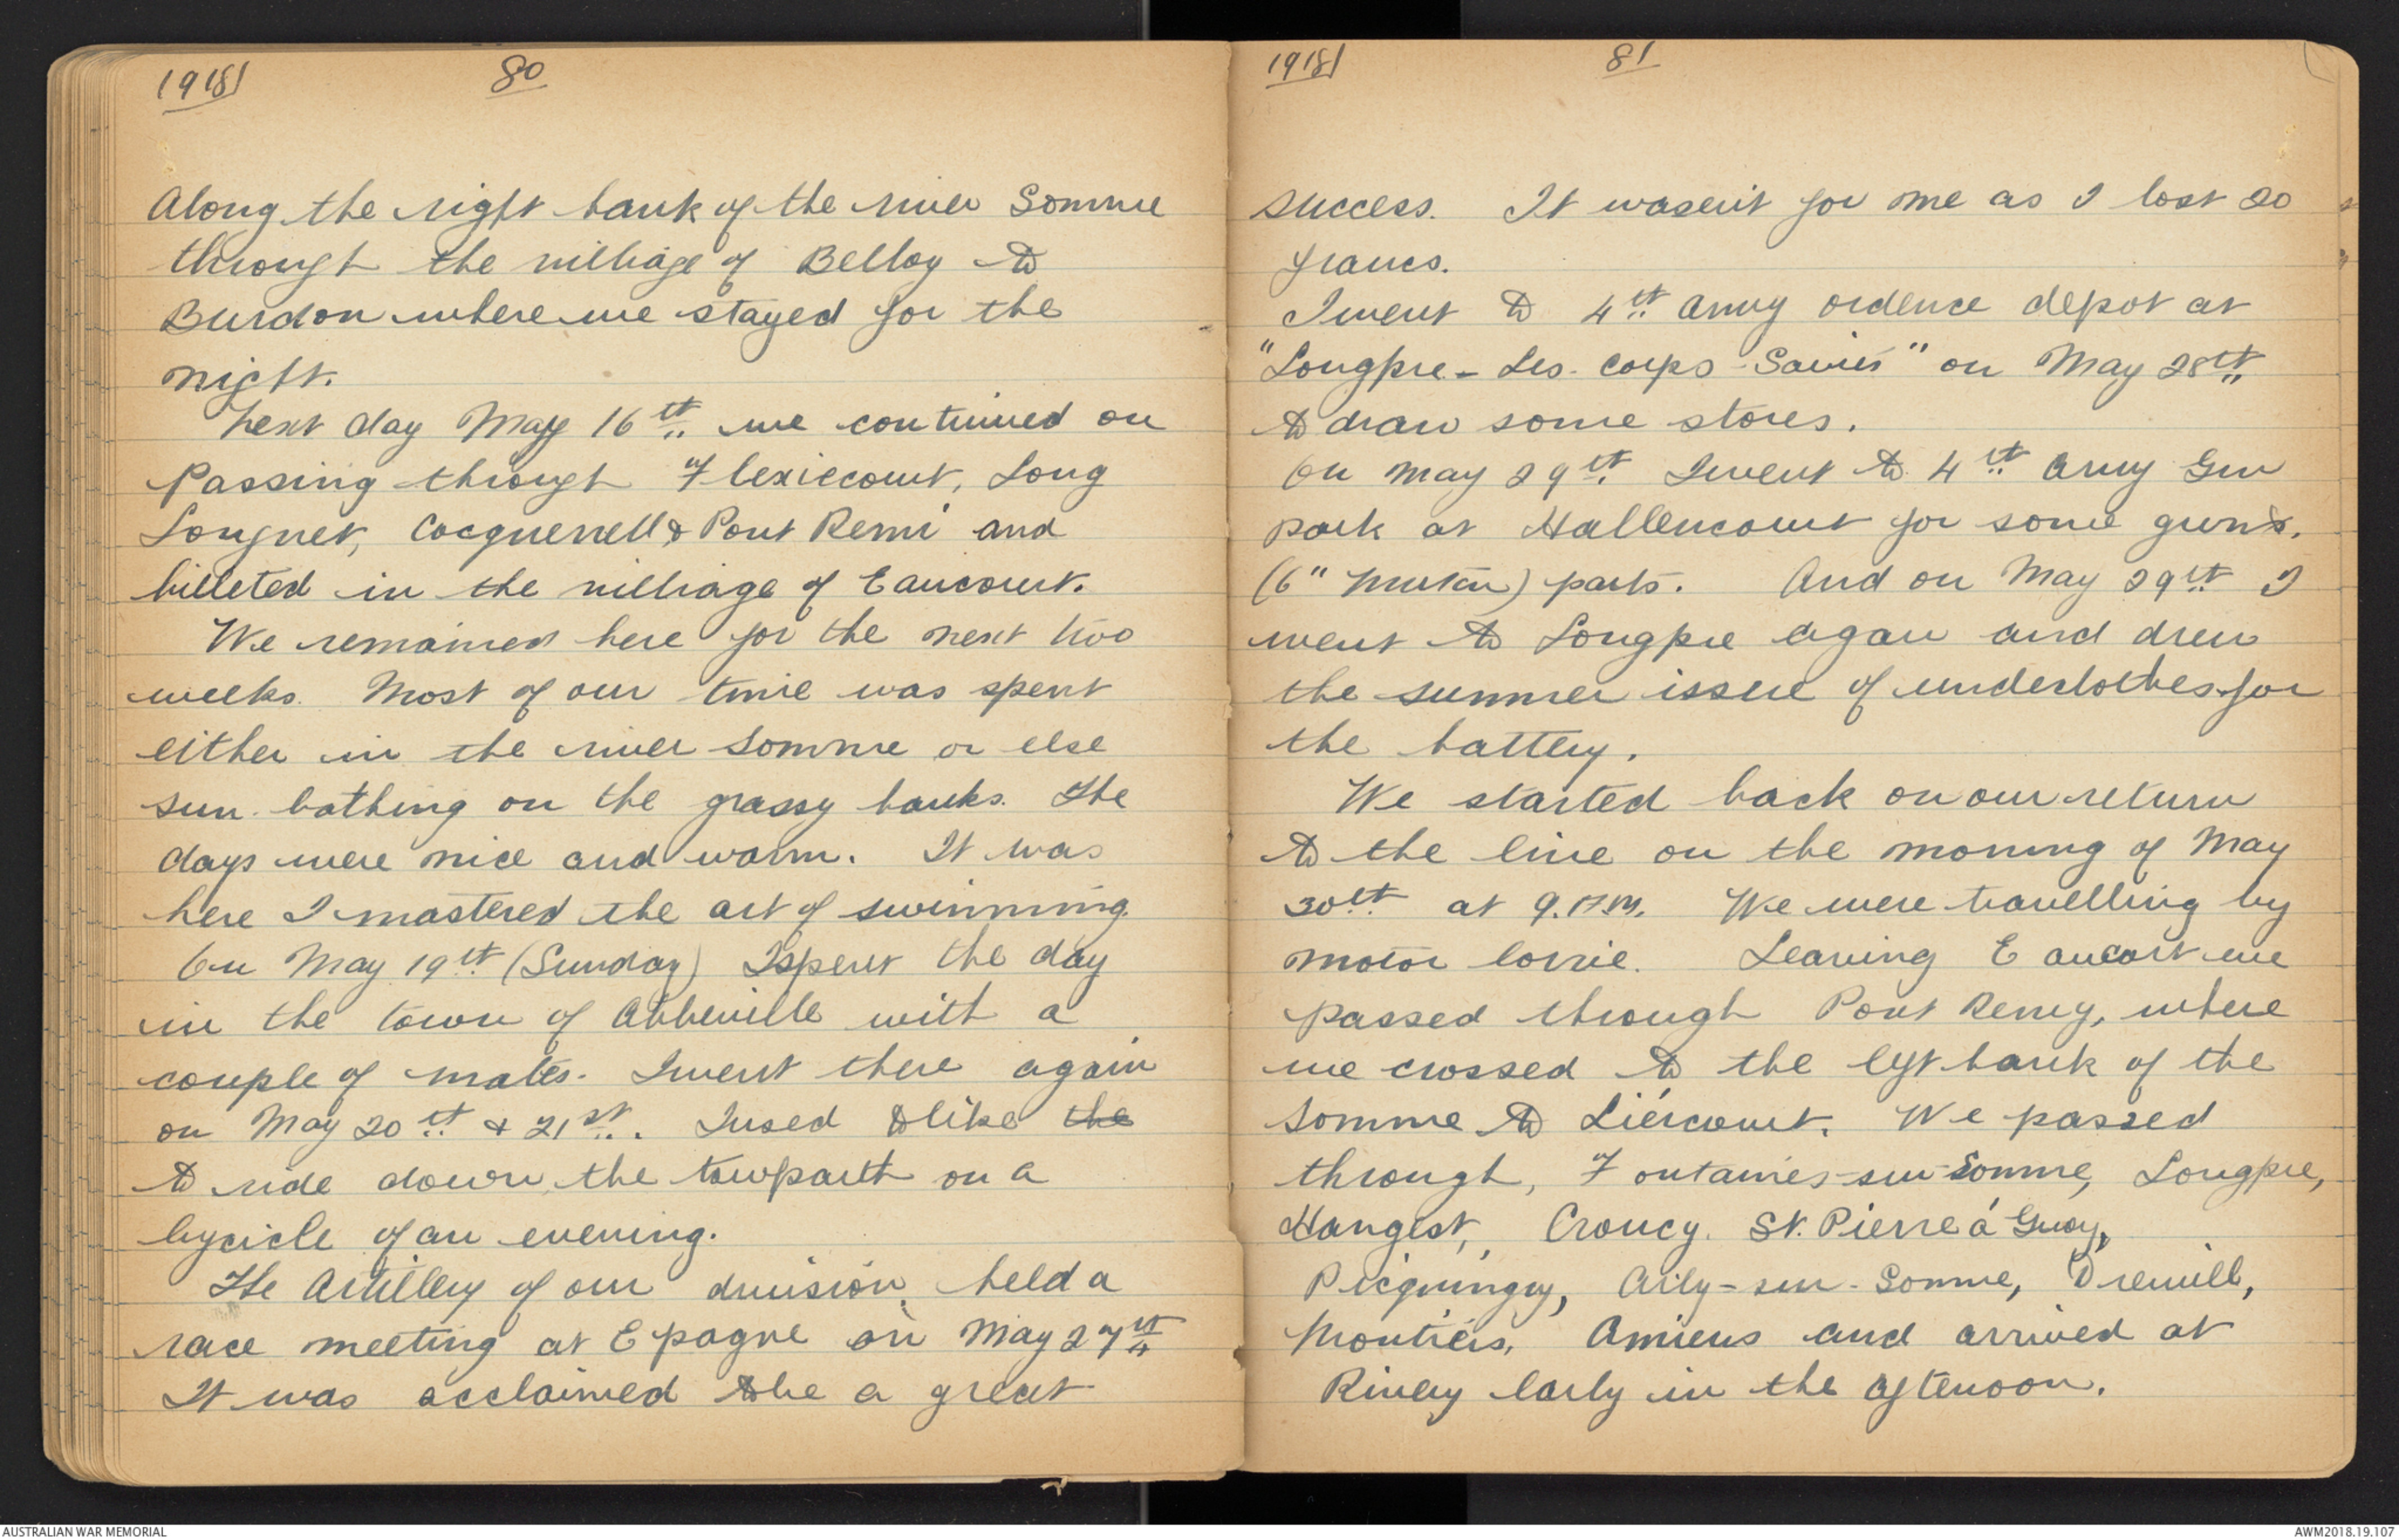 1918/ 80
Along the right bank of the river Somme
through the villiage of Belloy to
Burdon where we stayed for the
night.
Next day May 16th we continued on
Passing through Flexiecourt, Long
Longuet, Cocquerell & Pont Remi and
billeted in the villiage of Eaucourt.
We remained here for the next two
weeks. Most of our time was spent
either in the river Somme or else
sun bathing on the grassy banks. The
days were nice and warm. It was
here I mastered the art of swimming.
On May 19th (Sunday) I spent the day
in the town of Abbeville with a
couple of mates. I went there again
on May 20th & 21st. I used to like the
to ride down the towparth on a
bycicle of an evening.
The Artillery of our division, held a
race meeting at Epagne on May 27th
It was acclaimed to be a great
1918/ 81
success. It wasen't for me as I lost 20
francs.
I went to 4th Army ordence depot at
"Longpre-Les-Corps-Saines" on May 28th
to draw some stores.
On May 29th I went to 4th Army Gun
park at Hallencourt for some guns.
(6" ) parts. And on May 29th I
went to Longpre again and drew
the summer issue of underclothes for
the battery.
We started back on our return
to the line on the morning of May
30th at 9. We were travelling by
motor lorrie. Leaving Eaucort we
passed through Pont Remy, where
we crossed to the left bank of the
Somme to Liércourt. We passed
through, Fontaines-sur-Somme, Longpre,
Hangest, Croucy. St. Pierre á Guoy,
Picquingny, Aily-sur-Somme, Dreuill,
Montiéis, Amiens and arrived at
Rivery early in the afternoon.
AUSTRALIAN WAR MEMORIAL
AWM2018.19.107